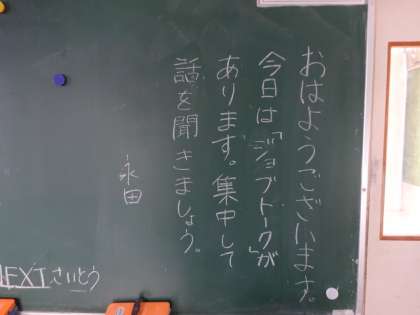 おはようございます。
今日は「ジョブトーク」が
あります。集中して
話を聞きましょう。
永田
NEXT さいとう